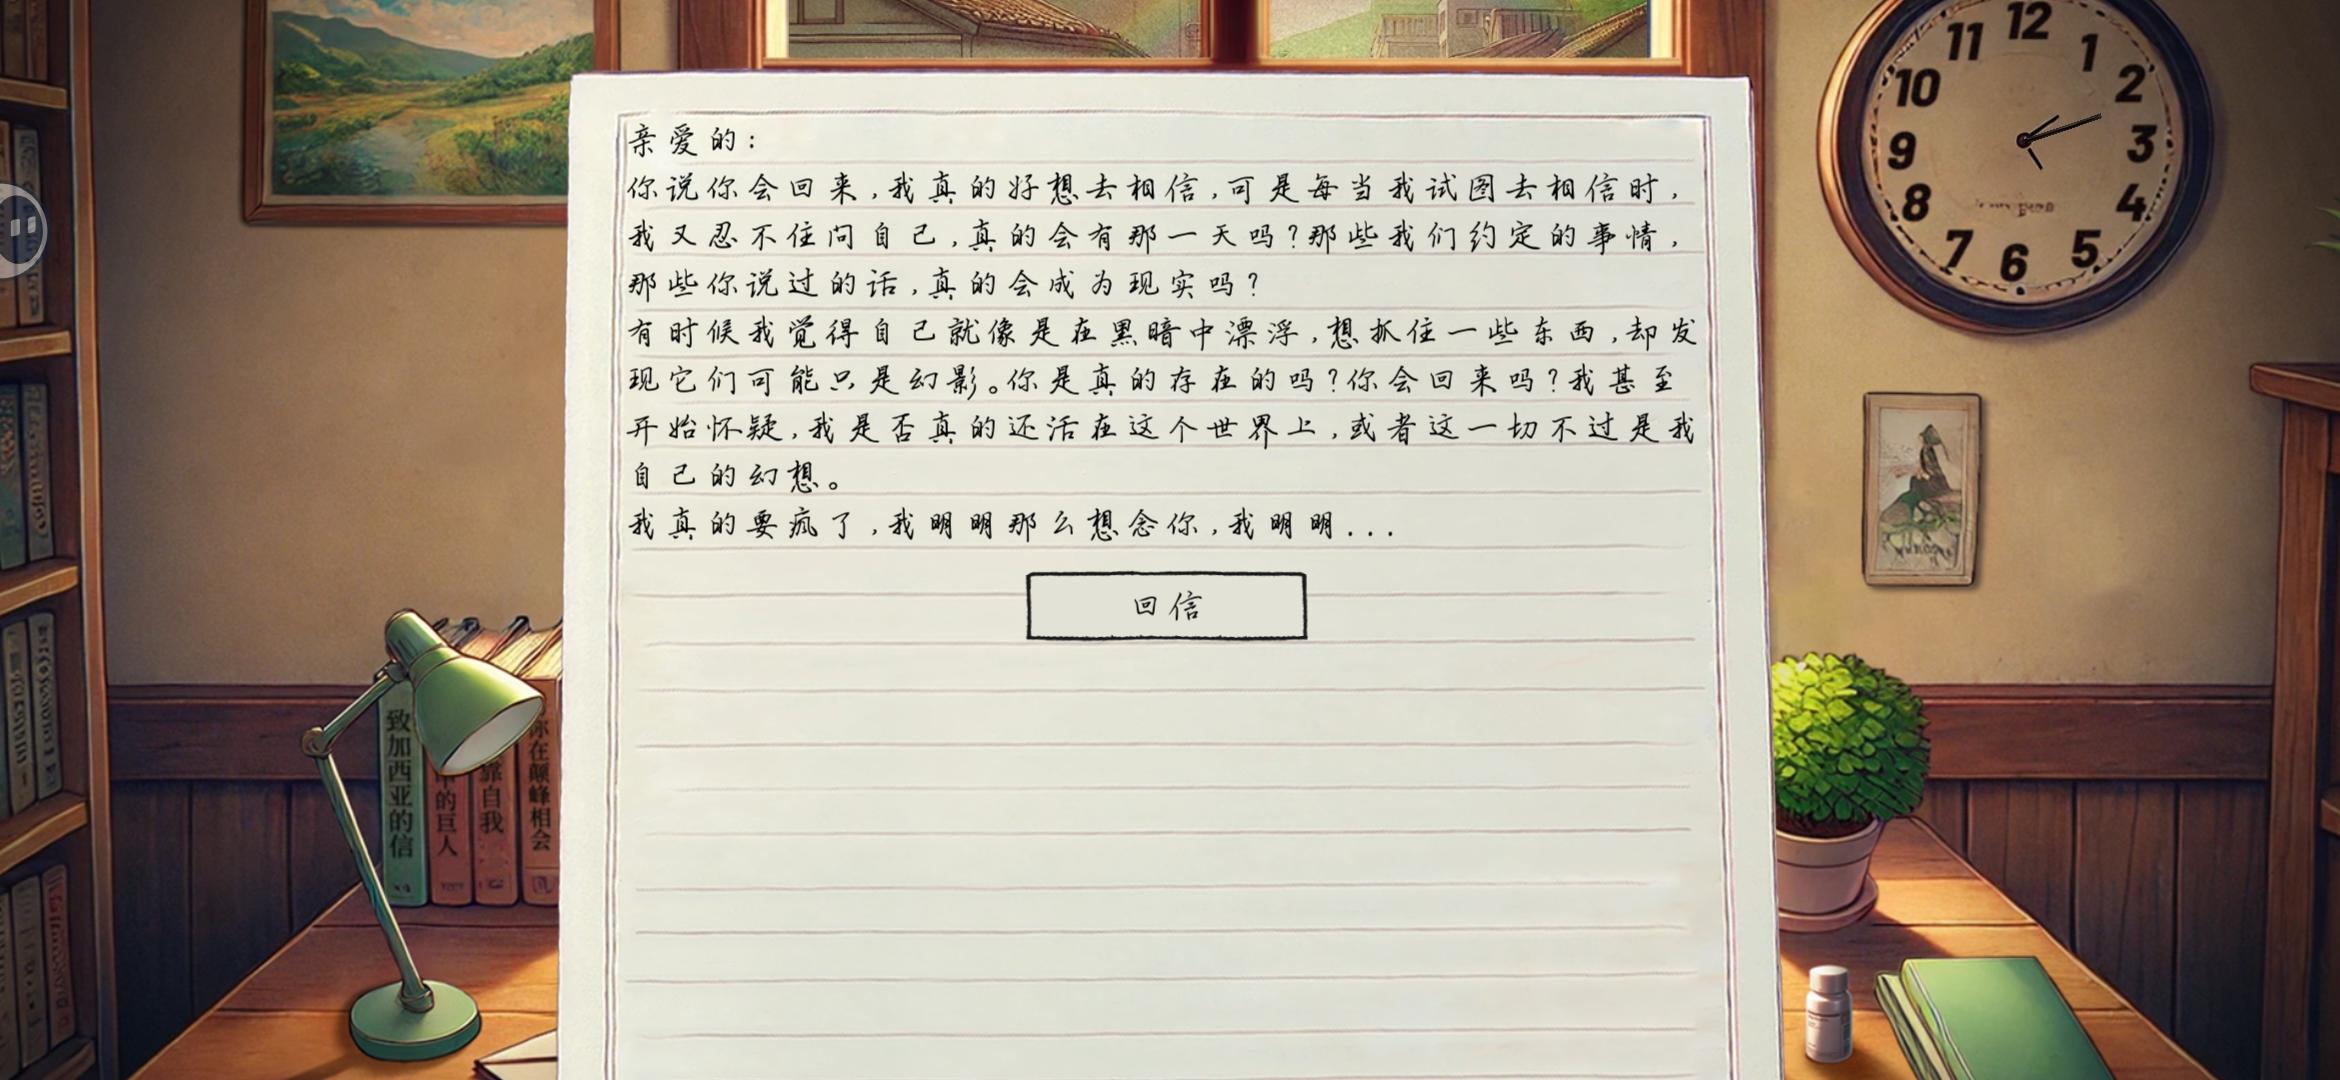 亲爱的：
你说你会回来，我真的好想去相信，可是每当我试图去相信时，
我又忍不住问自己，真的会有那一天吗？那些我们约定的事情，
那些你说过的话，真的会成为现实吗？
有时候我觉得自己就像是在黑暗中漂浮，想抓住一些东西，却发
现它们可能只是幻影。你是真的存在的吗？你会回来吗？我甚至
开始怀疑，我是否真的还活在这个世界上，或者这一切不过是我
自己的幻想。
我真的要疯了，我明明那么想念你，我明明...
回信
致加西亚的信
中的巨人
靠自我
你在巅峰相会
12
1
2
3
4
5
6
7
8
9
10
11